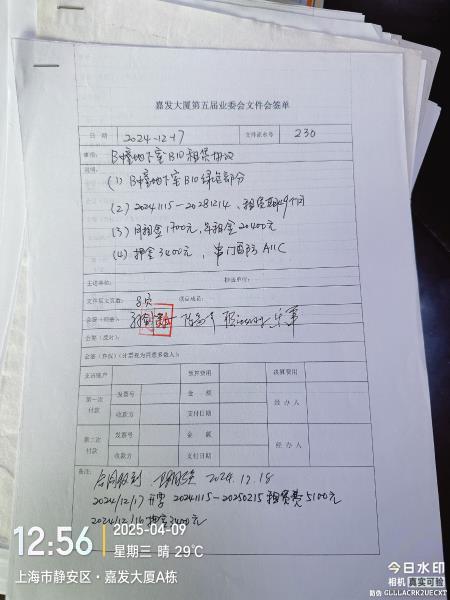 嘉发大厦第五届业委会文件会签单
日 期 2024-12-17 文件流水号 230
事由: B幢地下室B10租赁协议
说明:
(1) B幢地下室B10绿色部分
(2) 20241115-20281214，租赁期49个月
(3) 月租金1700元，年租金20400元
(4) 押金3400元，
主送单位: 抄送单位:
文件原文页数: 8页 项目成员:
会签(同意):
会签(反对):
会签(弃权)(计票视为同意多数人):
支出账户 预算费用 决算费用
第一次付款 发票号 金 额 经 办 人
收款方 支付日期
第二次付款 发票号 金 额 经 办 人
收款方 支付日期
备注:
合同收到 2024.12.18
2024/12/17 开票 20241115-20250215 租赁费5100元
2024/12/16 押金3400元
12:56 2025-04-09
星期三 晴 29℃
上海市静安区·嘉发大厦A栋
今日水印
相机 真实可验
防伪 GLLLACRK2UECXT